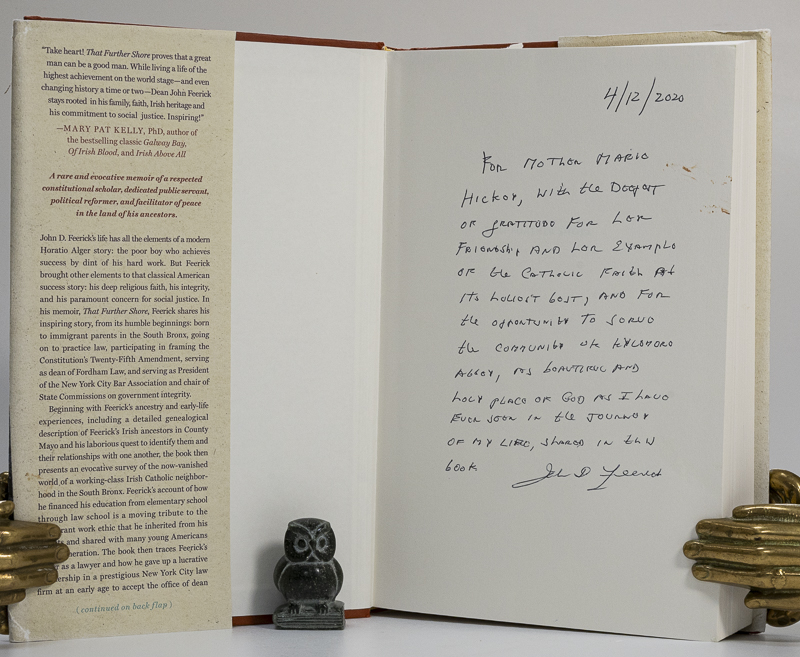 "Take heart! That Further Shore proves that a great
man can be a good man. While living a life of the
highest achievement on the world stage—and even
changing history a time or two—Dean John Feerick
stays rooted in his family, faith, Irish heritage and
his commitment to social justice. Inspiring!"
—MARY PAT KELLY, PhD, author of
the bestselling classic Galway Bay,
Of Irish Blood, and Irish Above All
A rare and evocative memoir of a respected
constitutional scholar, dedicated public servant,
political reformer, and facilitator of peace
in the land of his ancestors.
John D. Feerick's life has all the elements of a modern
Horatio Alger story: the poor boy who achieves
success by dint of his hard work. But Feerick
brought other elements to that classical American
success story: his deep religious faith, his integrity,
and his paramount concern for social justice. In
his memoir, That Further Shore, Feerick shares his
inspiring story, from its humble beginnings: born
to immigrant parents in the South Bronx, going
on to practice law, participating in framing the
Constitution's Twenty-Fifth Amendment, serving
as dean of Fordham Law, and serving as President
of the New York City Bar Association and chair of
State Commissions on government integrity.
Beginning with Feerick's ancestry and early-life
experiences, including a detailed genealogical
description of Feerick's Irish ancestors in County
Mayo and his laborious quest to identify them and
their relationships with one another, the book then
presents an evocative survey of the now-vanished
world of a working-class Irish Catholic neighbor-
hood in the South Bronx. Feerick's account of how
he financed his education from elementary school
through law school is a moving tribute to the
work ethic that he inherited from his
and shared with many young Americans
The book then traces Feerick's
as a lawyer and how he gave up a lucrative
in a prestigious New York City law
firm at an early age to accept the office of dean
(continued on back flap)
4/12/2020
For Mother Maria
Hickey, with the Deepest
of gratitude for her
Friendship and her example
of the Catholic Faith at
its holiest best, and for
the opportunity to serve
the community of Kylemore
Abbey, as beautiful and
holy place of God as I have
ever seen in the journey
of my life, shared in this
book
John D Feerick